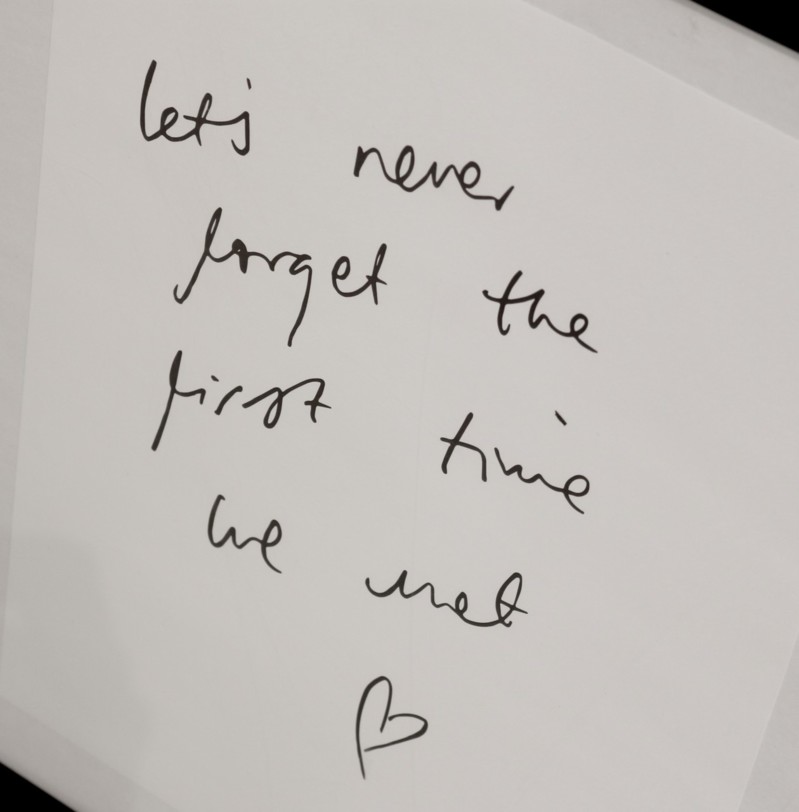 let's never
forget the
first time
we met
♡